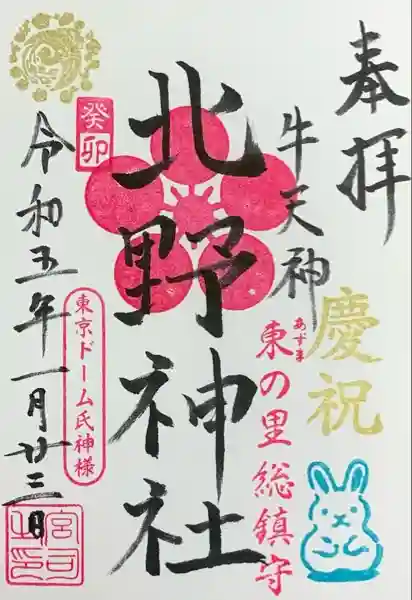 奉拝
慶祝
牛天神
あずま
東の里総鎮守
北野神社
癸卯
東京ドーム氏神様
令和五年一月廿三日
宮司之印